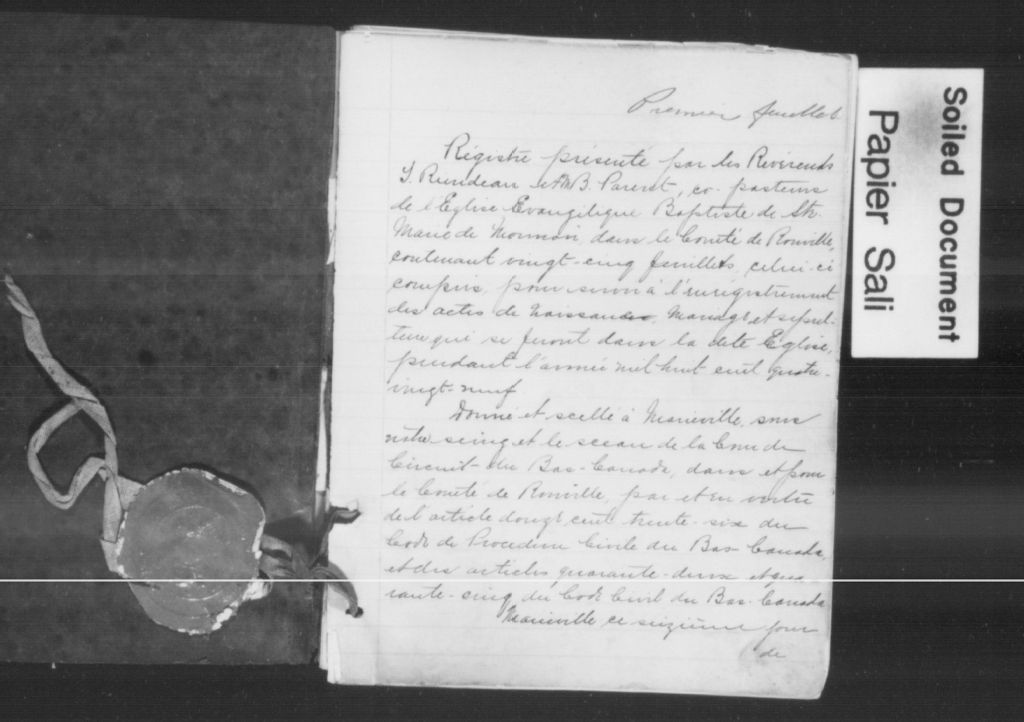 Premier feuillet
Régistre présenté par les Révérends
Rondeau et B. Parent, co-pasteurs
de l'Eglise Evangélique Baptiste de Ste.
Marie de Monnoir, dans le Comté de Rouville,
contenant vingt-cinq feuillets, celui-ci
compris, pour servir à l'enrégistrement
des actes de Naissances, Mariage et sépul-
ture qui se feront dans la dite Eglise,
pendant l'année mil huit cent quatre-
vingt-neuf.
Donné et scellé à Marieville, sous
notre seing et le sceau de la Cour de
Circuit du Bas-Canada, dans et pour
le Comté de Rouville, par et en vertu
de l'article douze cent trente-six du
Code de Procédure Civile du Bas-Canada,
et des articles quarante-deux et qua
rante-cinq du Code Civil du Bas-Canada
Marieville ce seizième jour
de
Soiled Document
Papier Sali